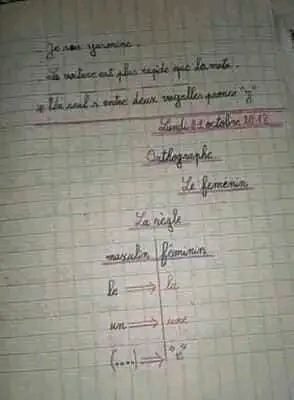 Je suis yasmine.
La voiture est plus rapide que la moto.
* Un seul s entre deux voyelles prones "z"
Lundi 21 octobre 2012
Orthographe
Le femenin
La règle
masculin féminin
le → la
un → une
(....) → "e"